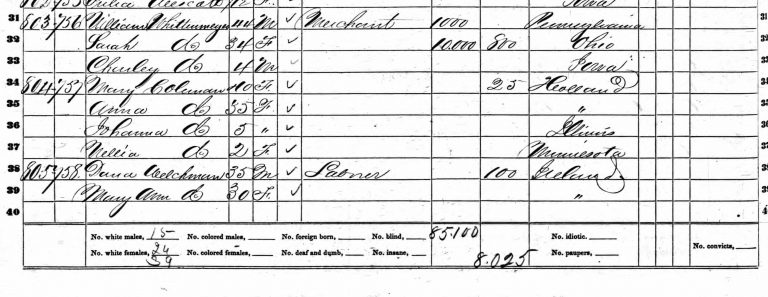 Iowa
31 803 756 William M 44 M ✓ Merchant 1000 Pennsylvania 31
32 Sarah do 34 F ✓ 10,000 800 Ohio 32
33 Charley do 4 M Iowa 33
34 804 757 Mary Coleman 40 F ✓ 25 Holland 34
35 Anna do 35 F ✓ " 35
36 Johanna do 5 " ✓ Illinois 36
37 Nellia do 2 F ✓ Minnesota 37
38 805 758 Dana 35 M ✓ 100 38
39 Mary Ann do 30 F ✓ " 39
40 40
No. white males, 15 No. colored males, No. foreign born, No. blind, 85.100 No. idiotic.
No. convicts,
No. white females, 24 No. colored females, No. deaf and dumb, No. insane, No. paupers,
39 8.025